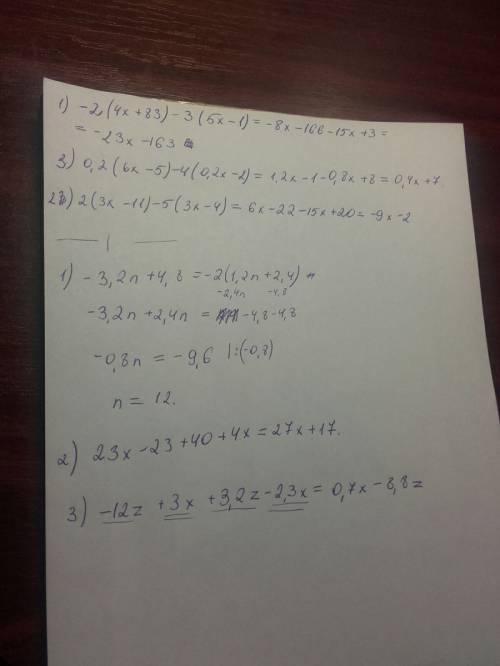 1) -2(4x+83)-3(5x-1)=-8x-166-15x+3=
= -23x-163
3) 0,2(6x-5)-4(0,2x-2)=1,2x-1-0,8x+8=0,4x+7.
2) 2(3x-11)-5(3x-4)=6x-22-15x+20=-9x-2
1) -3,2n+4,8=-2(1,2n+2,4)
-2,4n -4,8
-3,2n+2,4n = -4,8-4,8
-0,8n = -9,6 |:(-0,8)
n = 12.
2) 23x-23+40+4x=27x+17.
3) -12z +3x +3,2z-2,3x=0,7x-8,8z